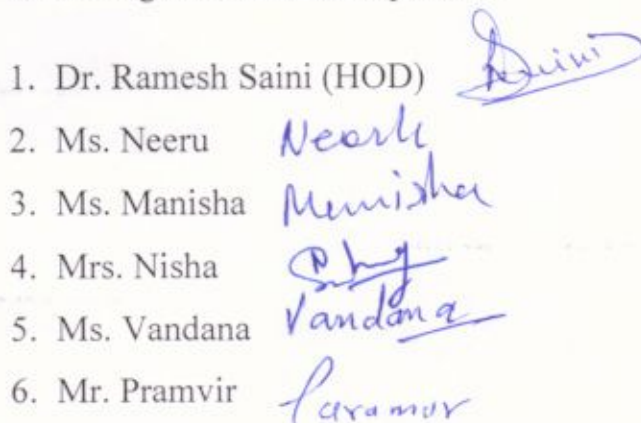 1. Dr. Ramesh Saini (HOD) Saini
2. Ms. Neeru Neeru
3. Ms. Manisha Manisha
4. Mrs. Nisha
5. Ms. Vandana Vandana
6. Mr. Pramvir